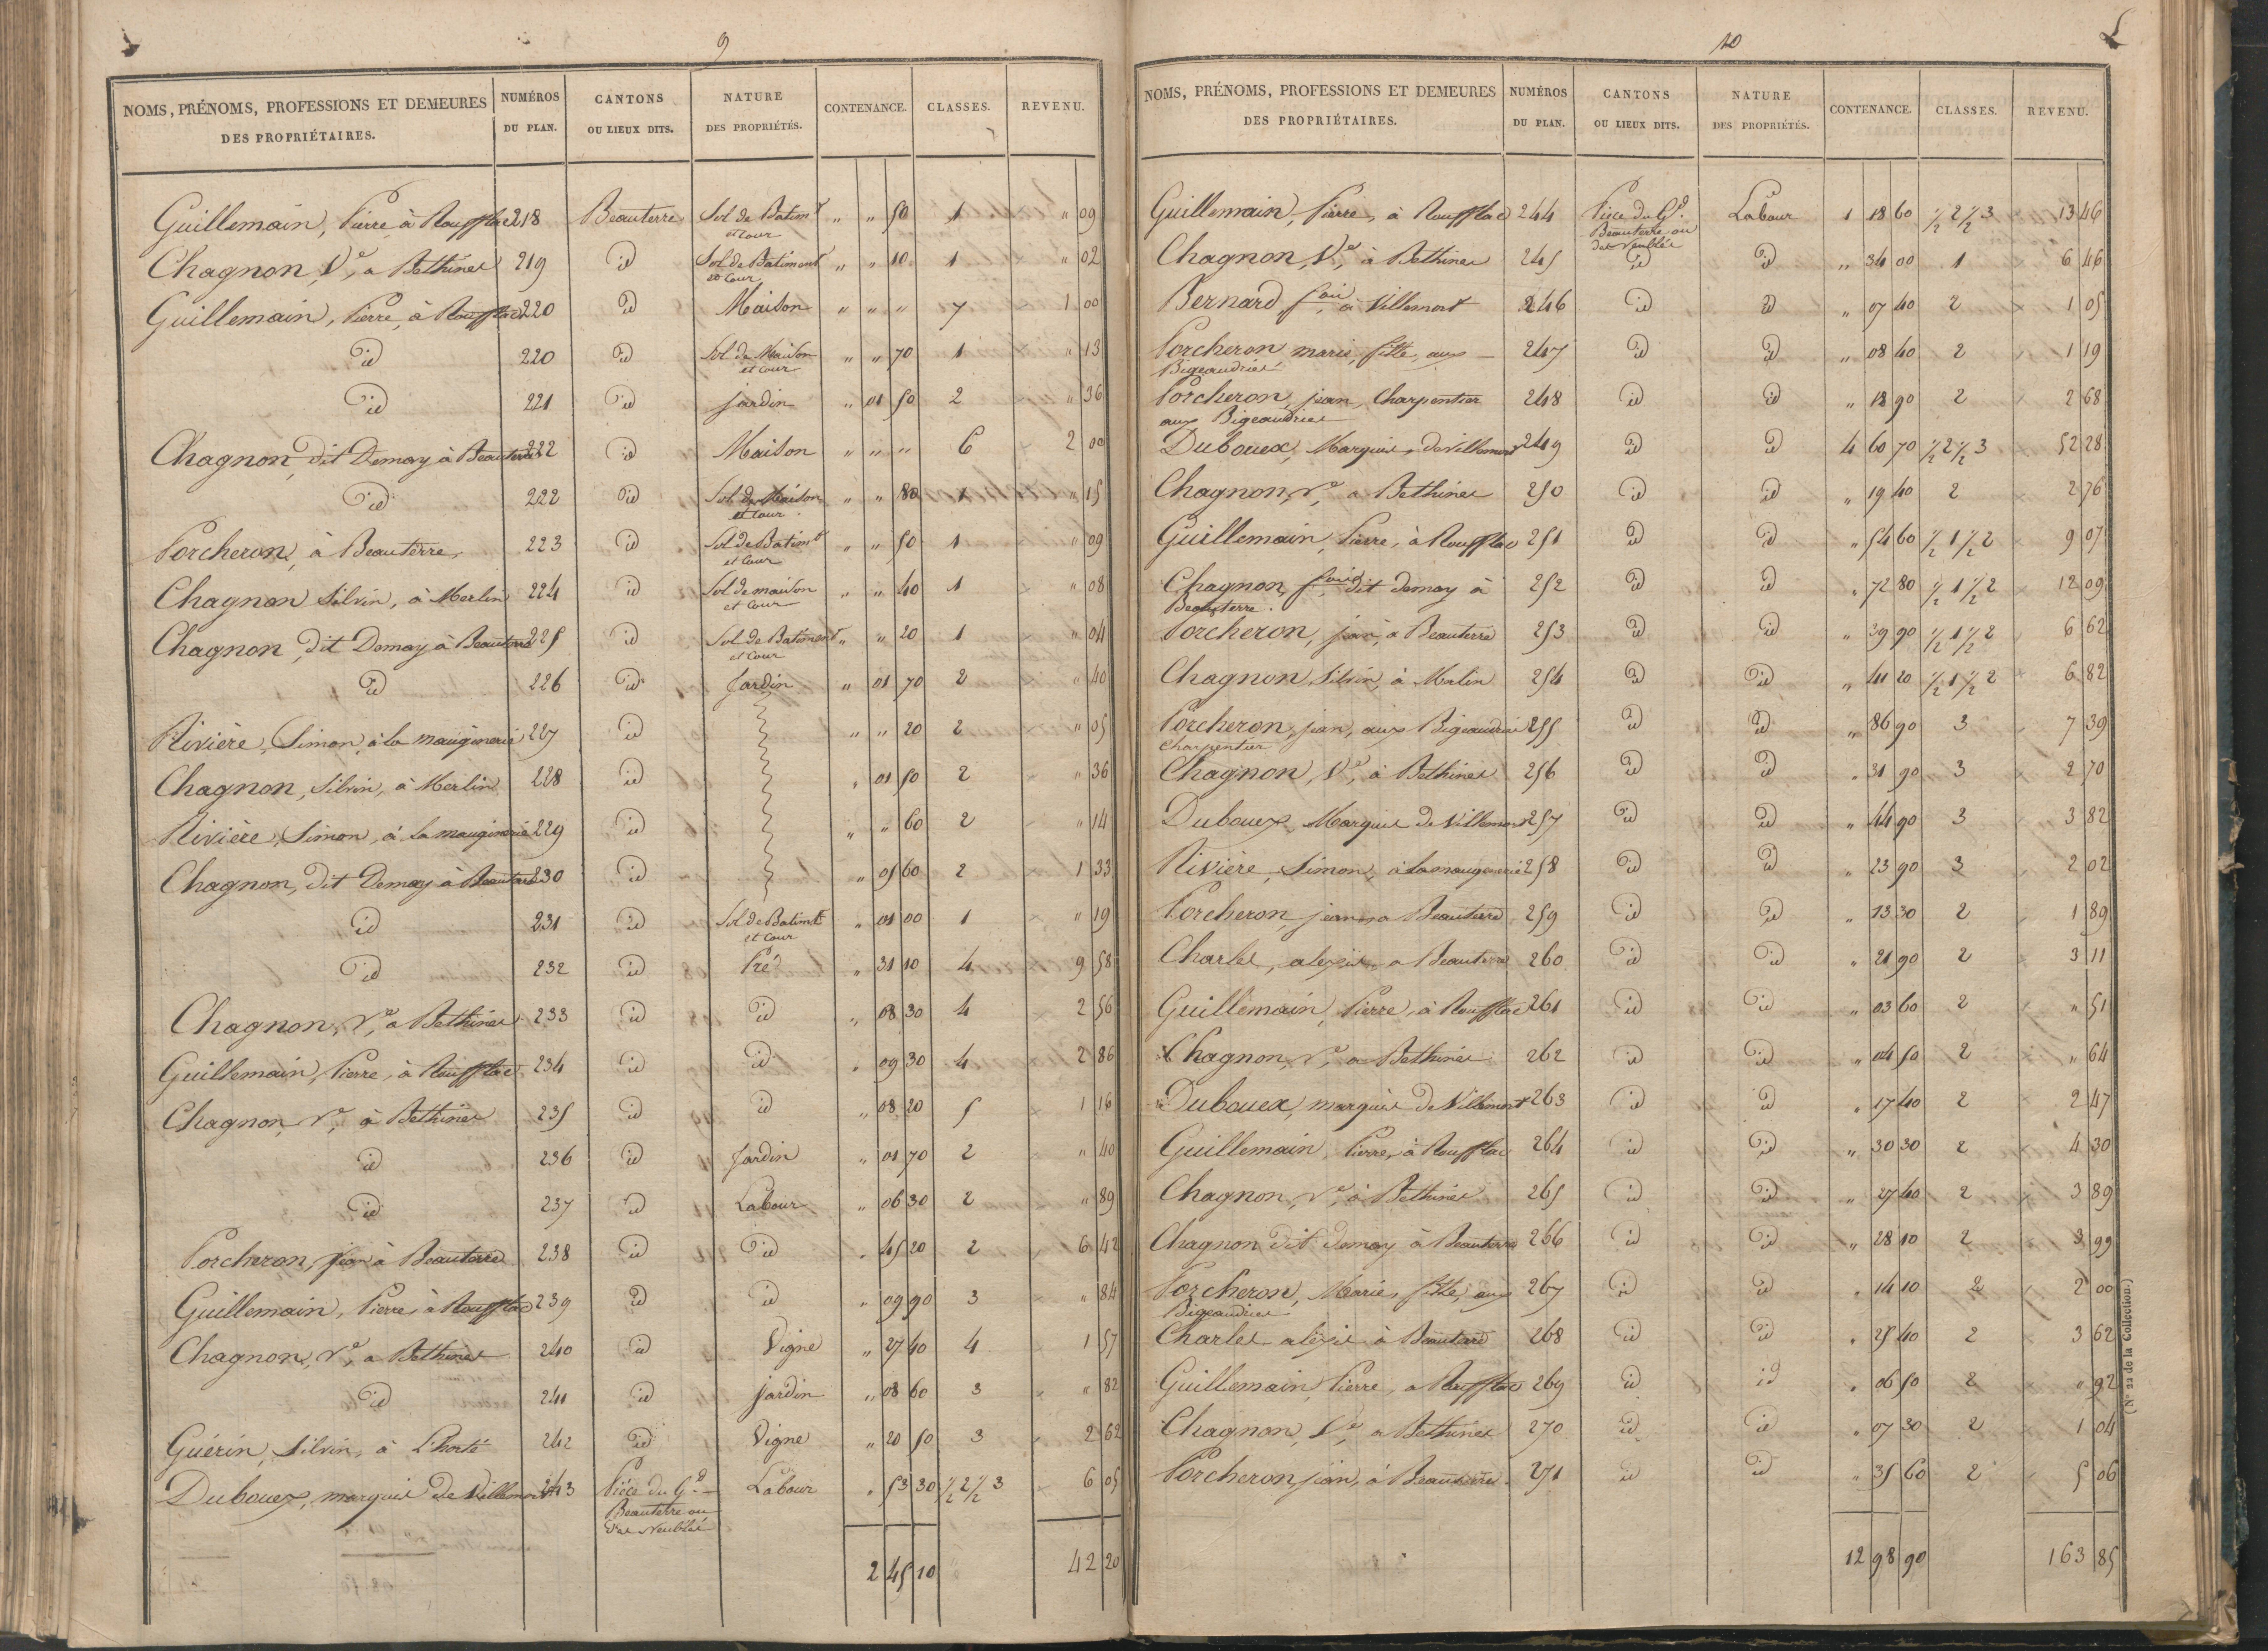 9
NOMS, PRÉNOMS, PROFESSIONS ET DEMEURES DES PROPRIÉTAIRES. NUMÉROS DU PLAN. CANTONS OU LIEUX DITS. NATURE DES PROPRIÉTÉS. CONTENANCE. CLASSES. REVENU.
Guillemain, Pierre à Roufflac 218 Beauterre Sol de Batimt et cour " " 50 1 " 09
Chagnon, Ve, à Béthines 219 id Sol de Batiment et Cour " " 10 1 " 02
Guillemain, Pierre, à Roufflac 220 id Maison " " " 7 1 00
id 220 id Sol de Maison et cour " " 70 1 " 13
id 221 id jardin " 01 50 2 " 36
Chagnon, dit Demay à Beauterre 222 id Maison " " " 6 2 00
id 222 id Sol de Maison et cour " " 80 1 " 15
Porcheron, à Beauterre, 223 id Sol de Batimt et Cour " " 50 1 " 09
Chagnon Silvin, à Merlin 224 id Sol de maison et Cour " " 40 1 " 08
Chagnon, dit Demay à Beauterre 225 id Sol de Batiment et Cour " " 20 1 " 04
id 226 id Jardin " 01 70 2 " 40
Rivière, Simon, à la mauginerie 227 id " " 20 2 " 05
Chagnon, Silvin, à Merlin 228 id " 01 50 2 " 36
Rivière, Simon, à la mauginerie 229 id " " 60 2 " 14
Chagnon, dit Demay à Beauterre 230 id " 05 60 2 1 33
id 231 id Sol de Batimt et Cour " 01 00 1 " 19
id 232 id Pré " 31 10 4 9 58
Chagnon, Ve, à Béthines 233 id id " 08 30 4 2 56
Guillemain, Pierre, à Roufflac 234 id id " 09 30 4 2 86
Chagnon, Ve, à Béthines 235 id id " 08 20 5 1 16
id 236 id Jardin " 01 70 2 " 40
id 237 id Labour " 06 30 2 " 89
Porcheron, jean à Beauterre 238 id id " 45 20 2 6 42
Guillemain, Pierre, à Roufflac 239 id id " 09 90 3 " 84
Chagnon, Ve, à Béthines 240 id Vigne " 27 40 4 1 57
id 241 id jardin " 08 60 3 " 82
Guérin, Silvin, à L'horté 242 id Vigne " 20 50 3 2 62
Dubouex, marquis de Villemort 243 Pièce du Gd Beauterre ou des Neublés Labour " 53 30 1/2 2 1/2 3 6 05
2 45 10 42 20
10
NOMS, PRÉNOMS, PROFESSIONS ET DEMEURES DES PROPRIÉTAIRES. NUMÉROS DU PLAN. CANTONS OU LIEUX DITS. NATURE DES PROPRIÉTÉS. CONTENANCE. CLASSES. REVENU.
Guillemain, Pierre, à Roufflac 244 Pièce du Gd Beauterre ou des Neublés Labour 1 18 60 1/2 2 1/2 3 13 46
Chagnon, Ve, à Bethines 245 id id " 34 00 1 6 46
Bernard, à Villemort 246 id id " 07 40 2 1 05
Porcheron, marie, fille, aux Bigeaudries 247 id id " 08 40 2 1 19
Porcheron, jean, Charpentier aux Bigeaudries 248 id id " 18 90 2 2 68
Dubouex, Marquis, de Villemort 249 id id 4 60 70 1/2 2 1/2 3 52 28
Chagnon, Ve à Bethines 250 id id " 19 40 2 2 76
Guillemain, Pierre, à Roufflac 251 id id " 54 60 1/2 1 1/2 2 9 07
Chagnon, dit demay à Beauterre. 252 id id " 72 80 1/2 1 1/2 2 12 09
Porcheron, jean, à Beauterre 253 id id " 39 90 1/2 1 1/2 2 6 62
Chagnon Silvin, à Merlin 254 id id " 41 20 1/2 1 1/2 2 6 82
Porcheron, jean, aux Bigeaudries Charpentier 255 id id " 86 90 3 7 39
Chagnon, Ve, à Bethines 256 id id " 31 90 3 2 70
Dubouex, Marquis de Villemort 257 id id " 44 90 3 3 82
Rivière, Simon, à la maugenerie 258 id id " 23 90 3 2 02
Porcheron, jean, à Beauterre 259 id id " 13 30 2 1 89
Charles, alexis, à Beauterre 260 id id " 21 90 2 3 11
Guillemain, Pierre, à Roufflac 261 id id " 03 60 2 " 51
Chagnon, Ve, à Bethines 262 id id " 04 50 2 " 64
Dubouex, marquis de Villemort 263 id id " 17 40 2 2 47
Guillemain, Pierre, à Roufflac 264 id id " 30 30 2 4 30
Chagnon, Ve, à Bethines 265 id id " 27 40 2 3 89
Chagnon dit demay à Beauterre 266 id id " 28 10 2 3 99
Porcheron, Marie, fille, aux Bigeaudries 267 id id " 14 10 2 2 00
Charles alexis à Beauterre 268 id id " 25 40 2 3 62
Guillemain, Pierre, à Roufflac 269 id id " 06 50 2 " 92
Chagnon, Ve, à Bethines 270 id id " 07 30 2 1 04
Porcheron, jean, à Beauterre 271 id id " 35 60 2 5 06
12 98 90 163 85
(N° 22 de la Collection.)